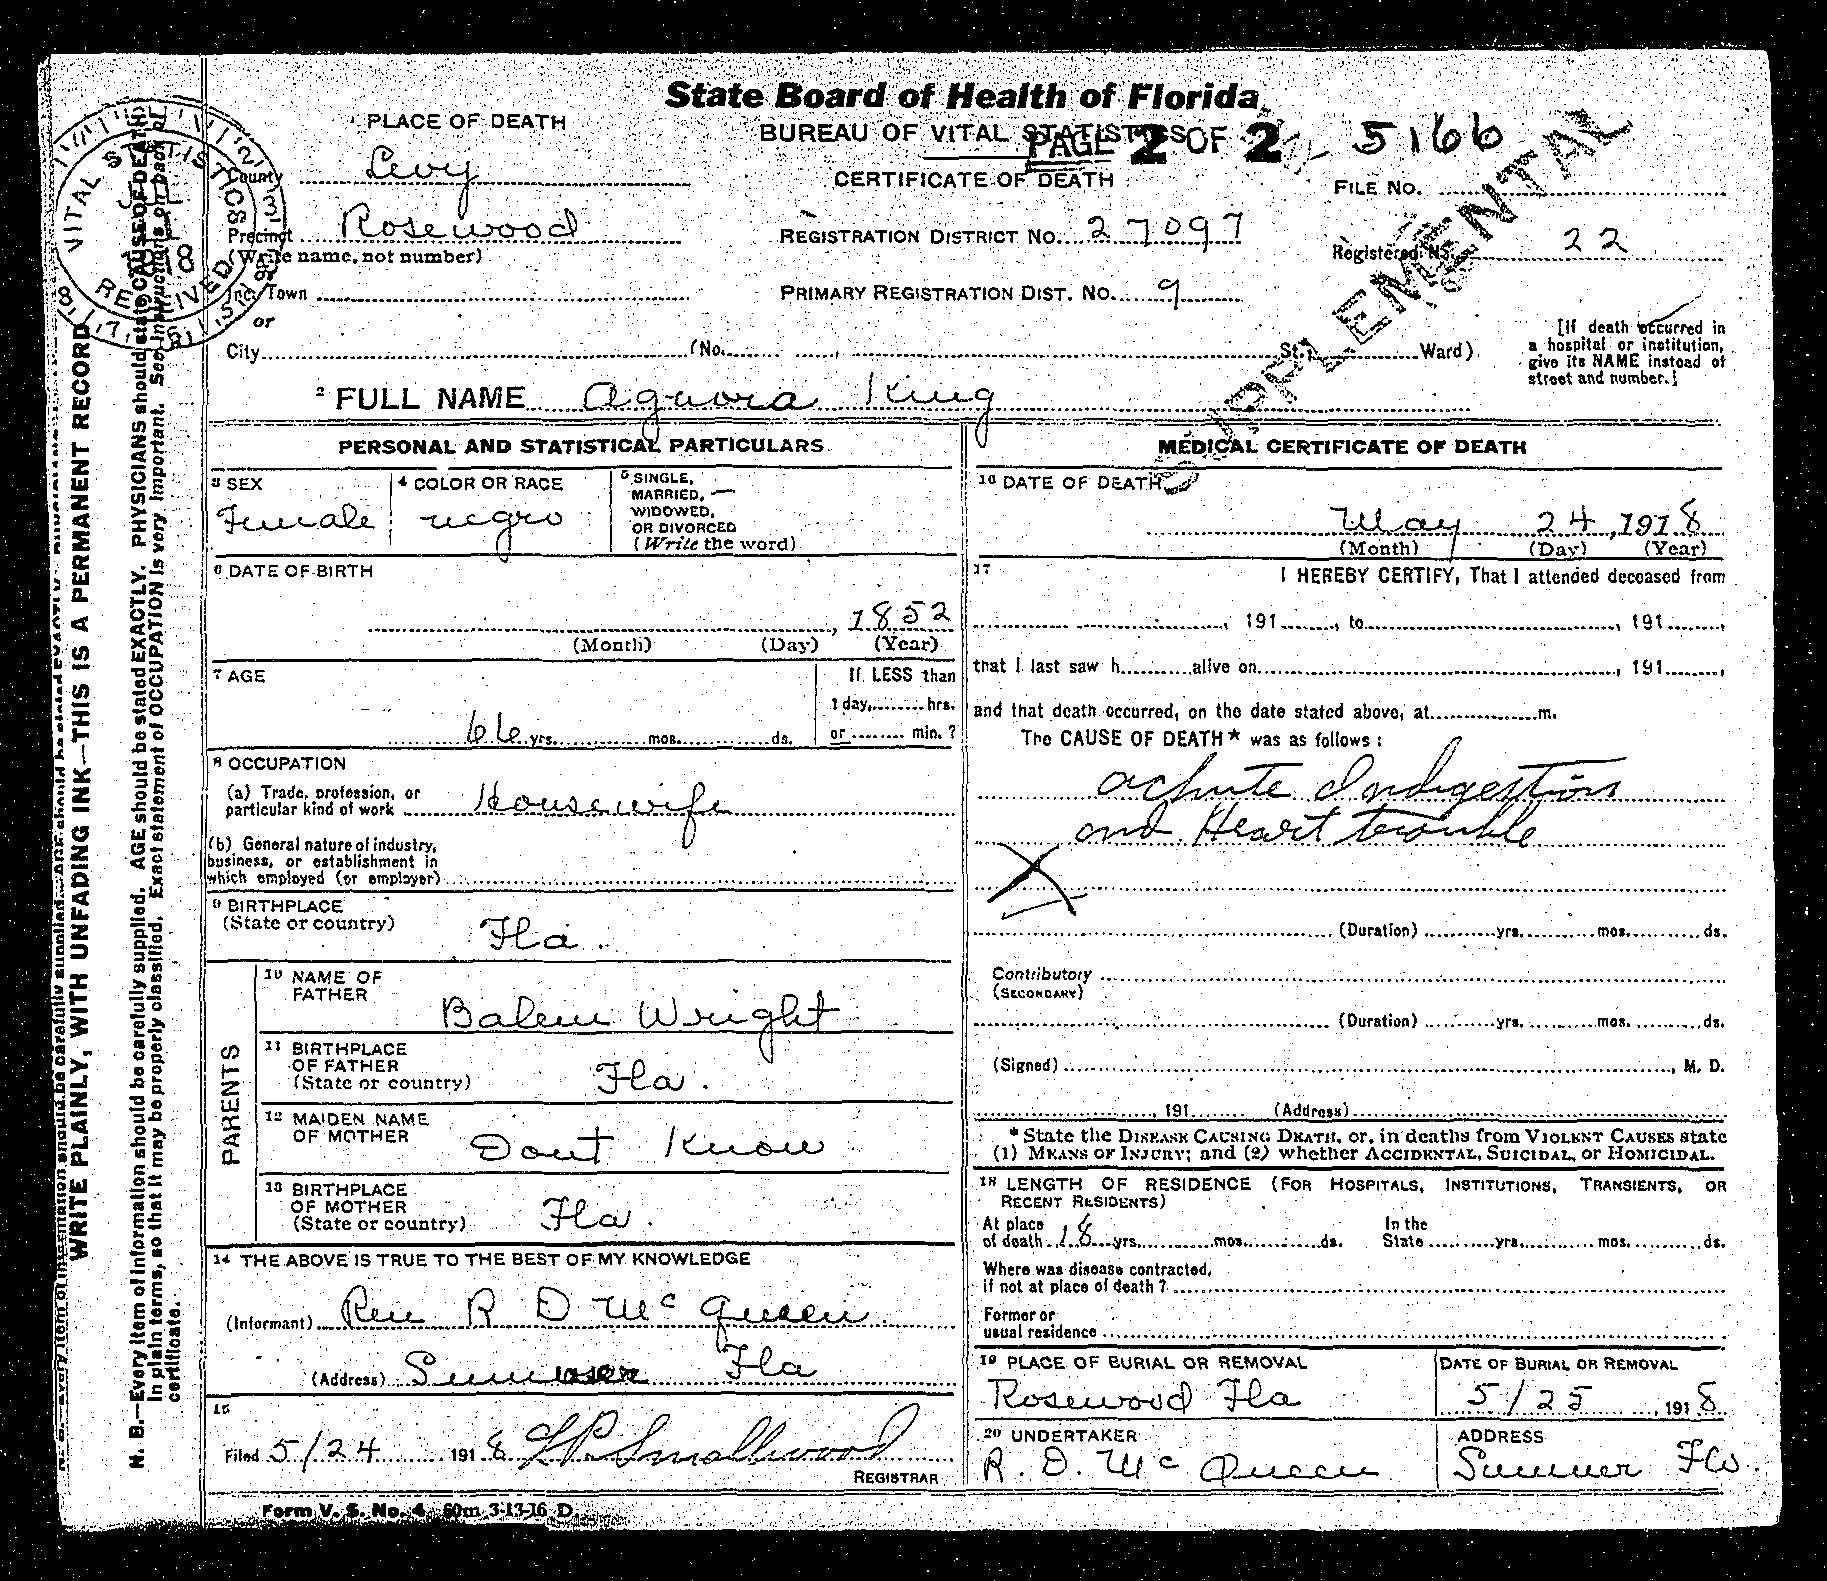 State Board of Health of Florida
BUREAU OF VITAL STATISTICS
PAGE 2 OF 2
5166
CERTIFICATE OF DEATH
SUPPLEMENTAL
PLACE OF DEATH
County Levy
Precinct Rosewood
(Write name, not number)
Inc. Town
or
City (No. St., Ward)
REGISTRATION DISTRICT No. 27097
PRIMARY REGISTRATION DIST. No. 9
FILE No.
Registered No. 22
[If death occurred in
a hospital or institution,
give its NAME instead of
street and number.]
VITAL STATISTICS
RECEIVED
2 FULL NAME Aguora King
PERSONAL AND STATISTICAL PARTICULARS
3 SEX
Female
4 COLOR OR RACE
negro
5 SINGLE,
MARRIED, —
WIDOWED,
OR DIVORCED
(Write the word)
6 DATE OF BIRTH
, 1852
(Month) (Day) (Year)
7 AGE
66 yrs. mos. ds.
If LESS than
1 day, hrs.
or min.?
8 OCCUPATION
(a) Trade, profession, or
particular kind of work Housewife
(b) General nature of industry,
business, or establishment in
which employed (or employer)
9 BIRTHPLACE
(State or country) Fla.
PARENTS
10 NAME OF
FATHER Balem Wright
11 BIRTHPLACE
OF FATHER
(State or country) Fla.
12 MAIDEN NAME
OF MOTHER Dont Know
13 BIRTHPLACE
OF MOTHER
(State or country) Fla.
14 THE ABOVE IS TRUE TO THE BEST OF MY KNOWLEDGE
(Informant) Rev R D McQueen
(Address) Sumner Fla
15
Filed 5/24 1918 L P. Smallwood
REGISTRAR
Form V. S. No. 4 60m 3-13-16 D
MEDICAL CERTIFICATE OF DEATH
16 DATE OF DEATH
May 24, 1918
(Month) (Day) (Year)
17 I HEREBY CERTIFY, That I attended deceased from
, 191 , to , 191 ,
that I last saw h alive on , 191 ,
and that death occurred, on the date stated above, at m.
The CAUSE OF DEATH* was as follows:
achute Indigestion
and Heart trouble
X
(Duration) yrs. mos. ds.
Contributory
(SECONDARY)
(Duration) yrs. mos. ds.
(Signed) , M. D.
, 191 (Address)
*State the DISEASE CAUSING DEATH, or, in deaths from VIOLENT CAUSES state
(1) MEANS OF INJURY; and (2) whether ACCIDENTAL, SUICIDAL, or HOMICIDAL.
18 LENGTH OF RESIDENCE (FOR HOSPITALS, INSTITUTIONS, TRANSIENTS, OR
RECENT RESIDENTS)
At place In the
of death 18 yrs. mos. ds. State yrs. mos. ds.
Where was disease contracted,
if not at place of death?
Former or
usual residence
19 PLACE OF BURIAL OR REMOVAL
Rosewood Fla
DATE OF BURIAL OR REMOVAL
5/25, 1918
20 UNDERTAKER
R. D. McQueen
ADDRESS
Sumner Fla.
WRITE PLAINLY, WITH UNFADING INK—THIS IS A PERMANENT RECORD
N. B.—Every item of information should be carefully supplied. AGE should be stated EXACTLY. PHYSICIANS should state CAUSE OF DEATH
in plain terms, so that it may be properly classified. Exact statement of OCCUPATION is very important. See instructions on back of
certificate.